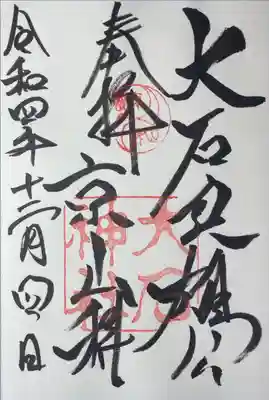 大石良雄公
奉拝
京山科
令和四年十二月四日
大石
神社